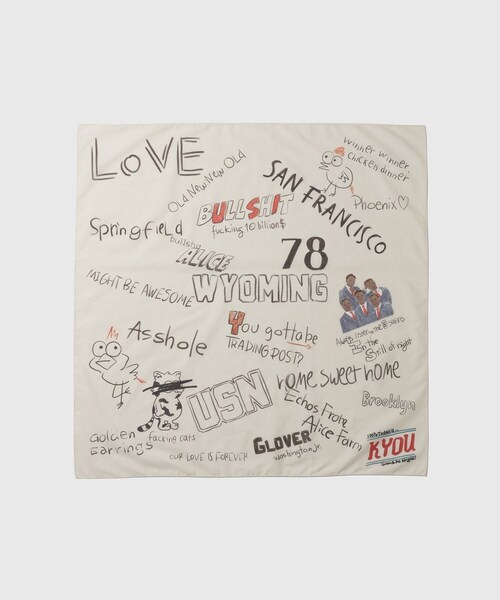 LOVE
OLD New New OLD
winner winner,
chicken dinner
Phoenix♡
SAN FRANCISCO
BULLSHIT
fucking 10 billion$
Springfield
bullshit
ALICE
78
WYOMING
MIGHT BE AWESOME
Asshole
4
You gotta be
TRADING POST?
In the
Still of night
home sweet home
USN
Echos From
Alice Farm
Brooklyn
Golden
Earrings
fucking cats
OUR LOVE is FOREVER
GLOVER
Washington, Jr.
KYOU